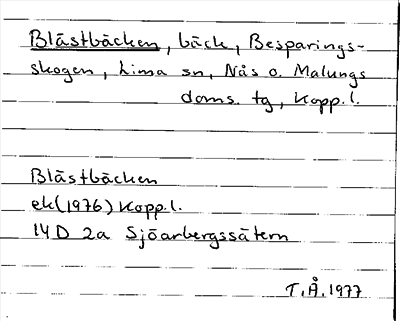 Blästbäcken, bäck, Besparings-
skogen, Lima sn, Nås o. Malungs
doms. tg, Kopp.l.
Blästbäcken
ek(1976) Kopp.l.
14D 2a Sjöarbergssätern
T.Å. 1977